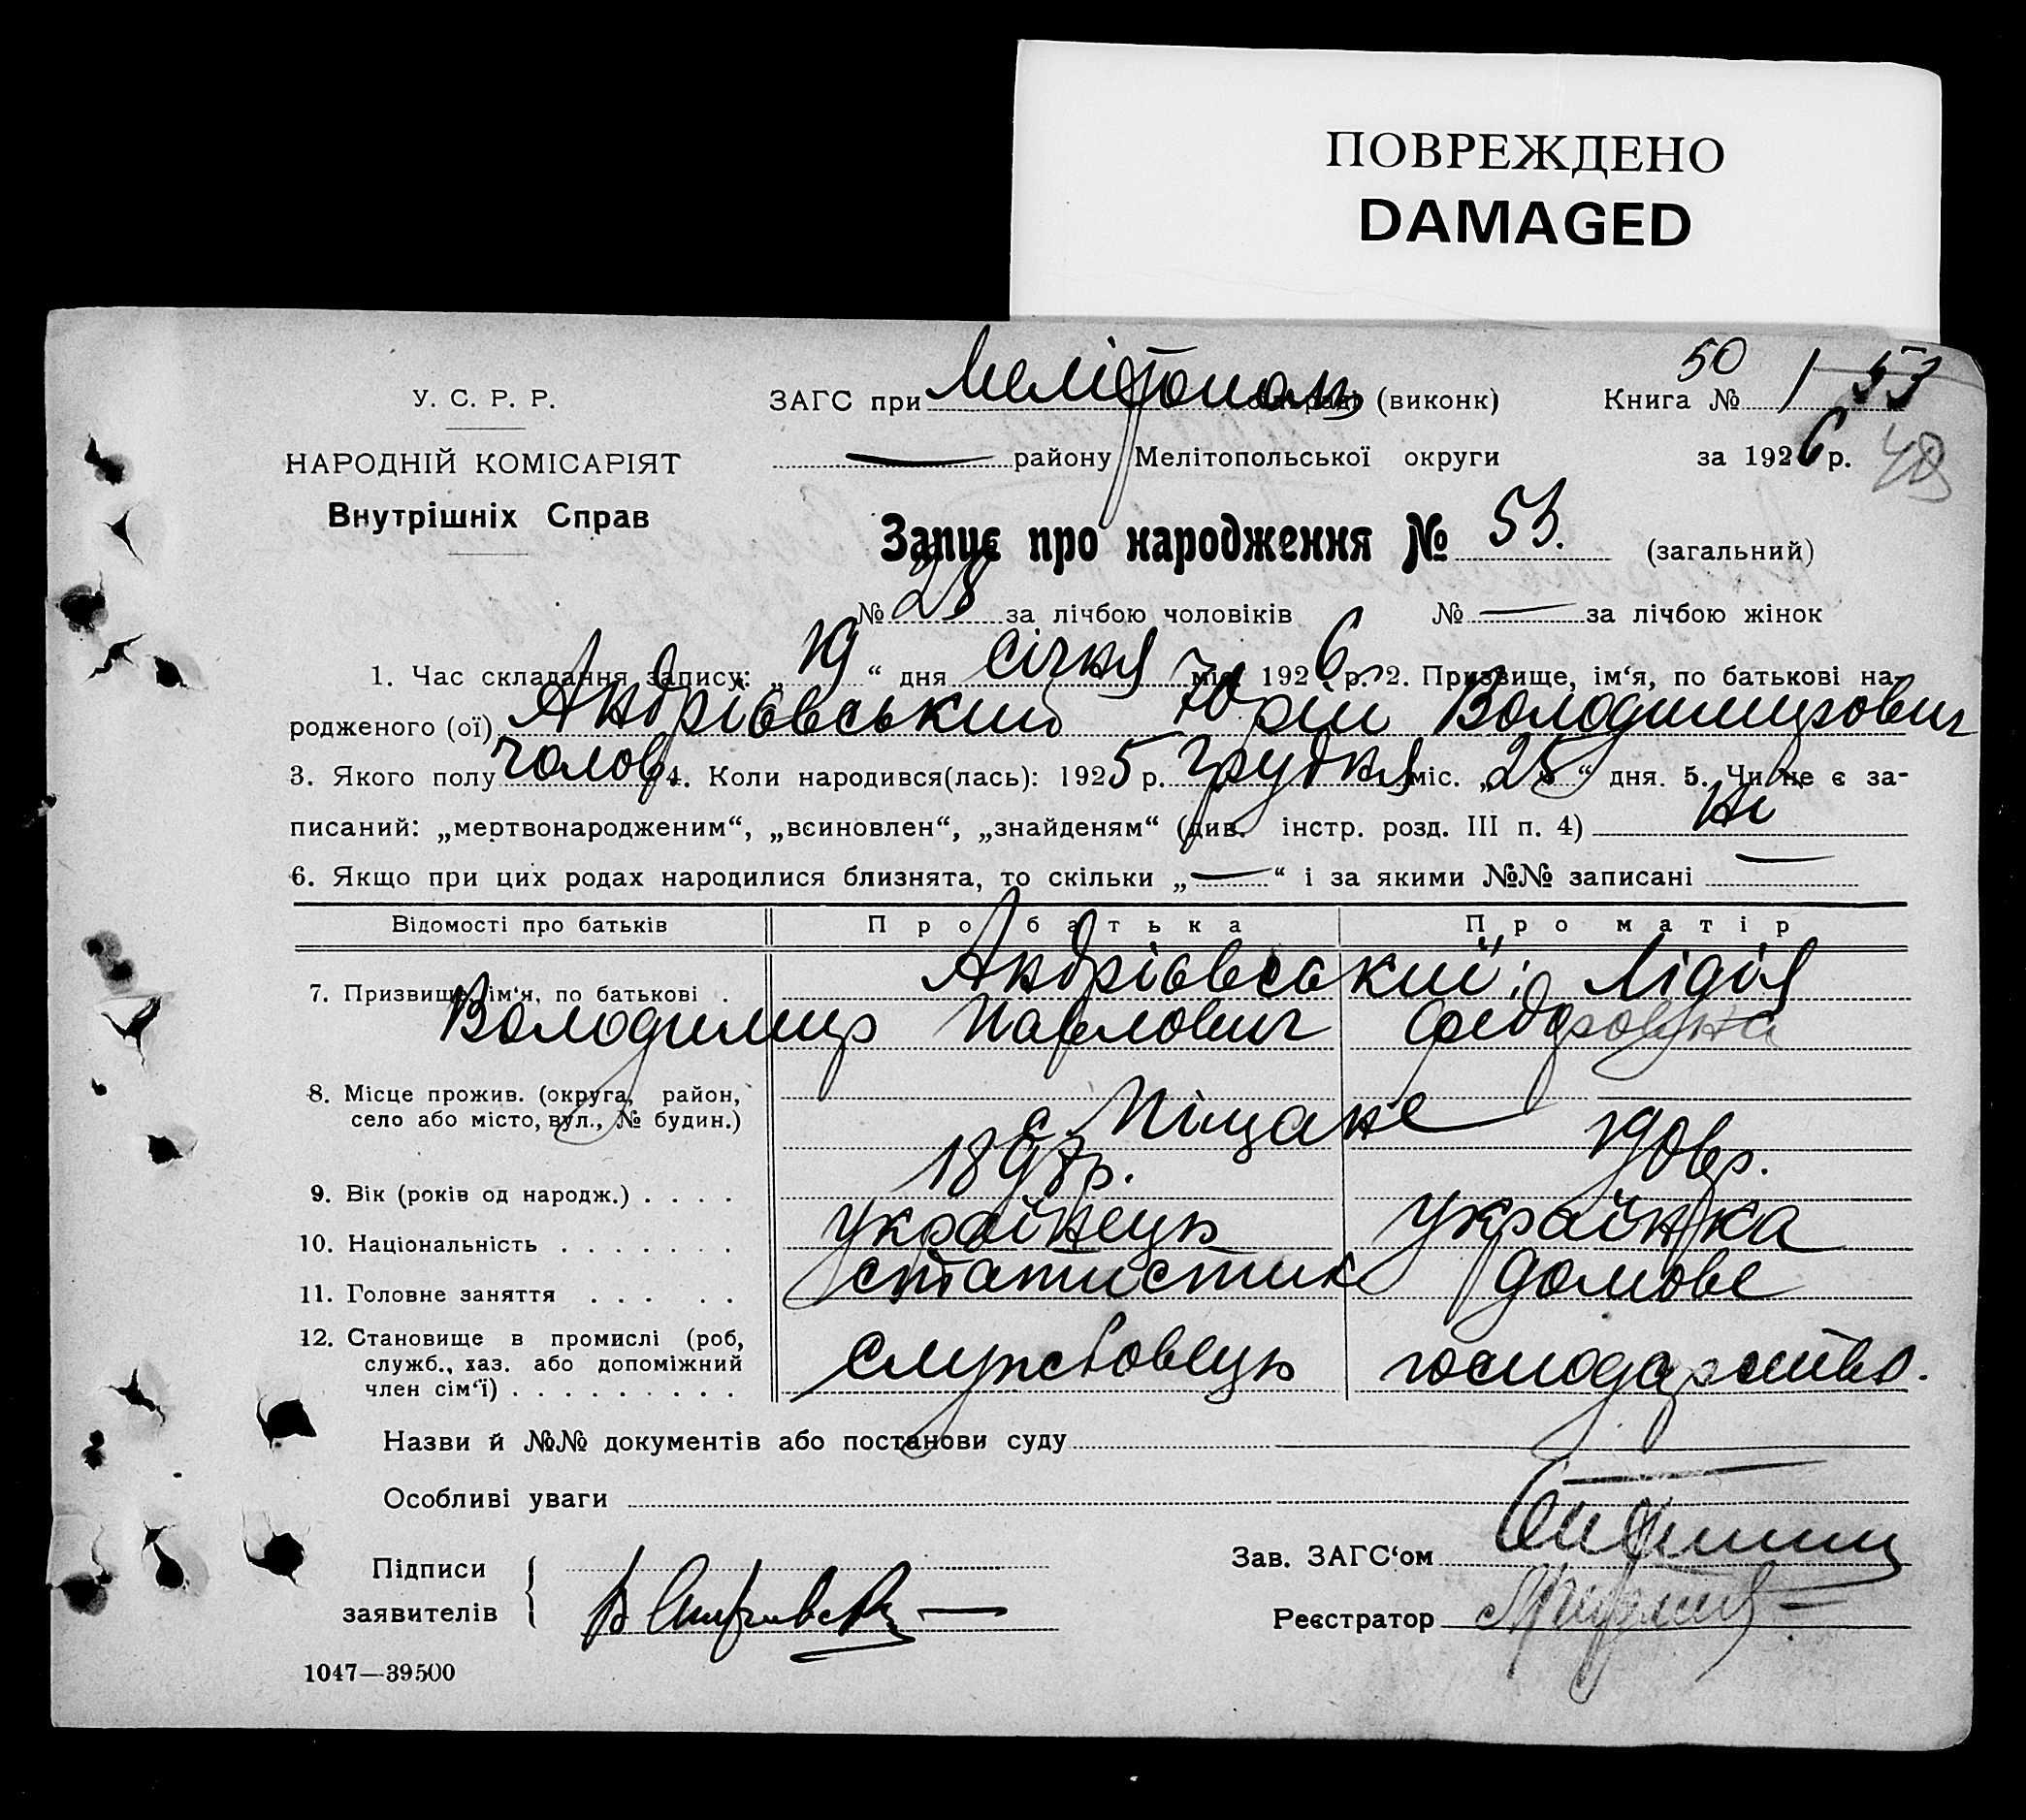 ПОВРЕЖДЕНО
DAMAGED
50
У. С. Р. Р.
ЗАГС при Мелітополь (виконк) Книга № 1 53
НАРОДНІЙ КОМІСАРІЯТ
— району Мелітопольської округи за 1926 р. 48
Внутрішніх Справ
Запис про народження № 53. (загальний)
№ 28 за лічбою чоловіків № — за лічбою жінок
1. Час складання запису: „ 19 “ дня січня міс. 1926 р. 2. Призвище, ім‘я, по батькові на-
родженого (ої) Андрієвський Юрій Володимирович
3. Якого полу чолов. 4. Коли народився(лась): 1925 р. Грудня міс. „ 25 “ дня. 5. Чи не є за-
писаний: „мертвонародженим“, „всиновлен“, „знайденям“ (див. інстр. розд. III п. 4) ні
6. Якщо при цих родах народилися близнята, то скільки „ — “ і за якими №№ записані —
Відомості про батьків Про батька Про матір
7. Призвище, ім‘я, по батькові . Андрієвський; Лідія
Володимир Павлович Федоровна
8. Місце прожив. (округа, район,
село або місто, вул., № будин.) с Піщане
9. Вік (років од народж.) . . . . 1897р. 190вр.
10. Національність . . . . . . . українець українка
11. Головне заняття . . . . . статистик домове
12. Становище в промислі (роб,
служб., хаз. або допоміжний
член сім‘ї) . . . . . . . . . службовець господарство.
Назви й №№ документів або постанови суду
Особливі уваги —
Підписи
заявителів
Зав. ЗАГС‘ом
Реєстратор
1047—39500